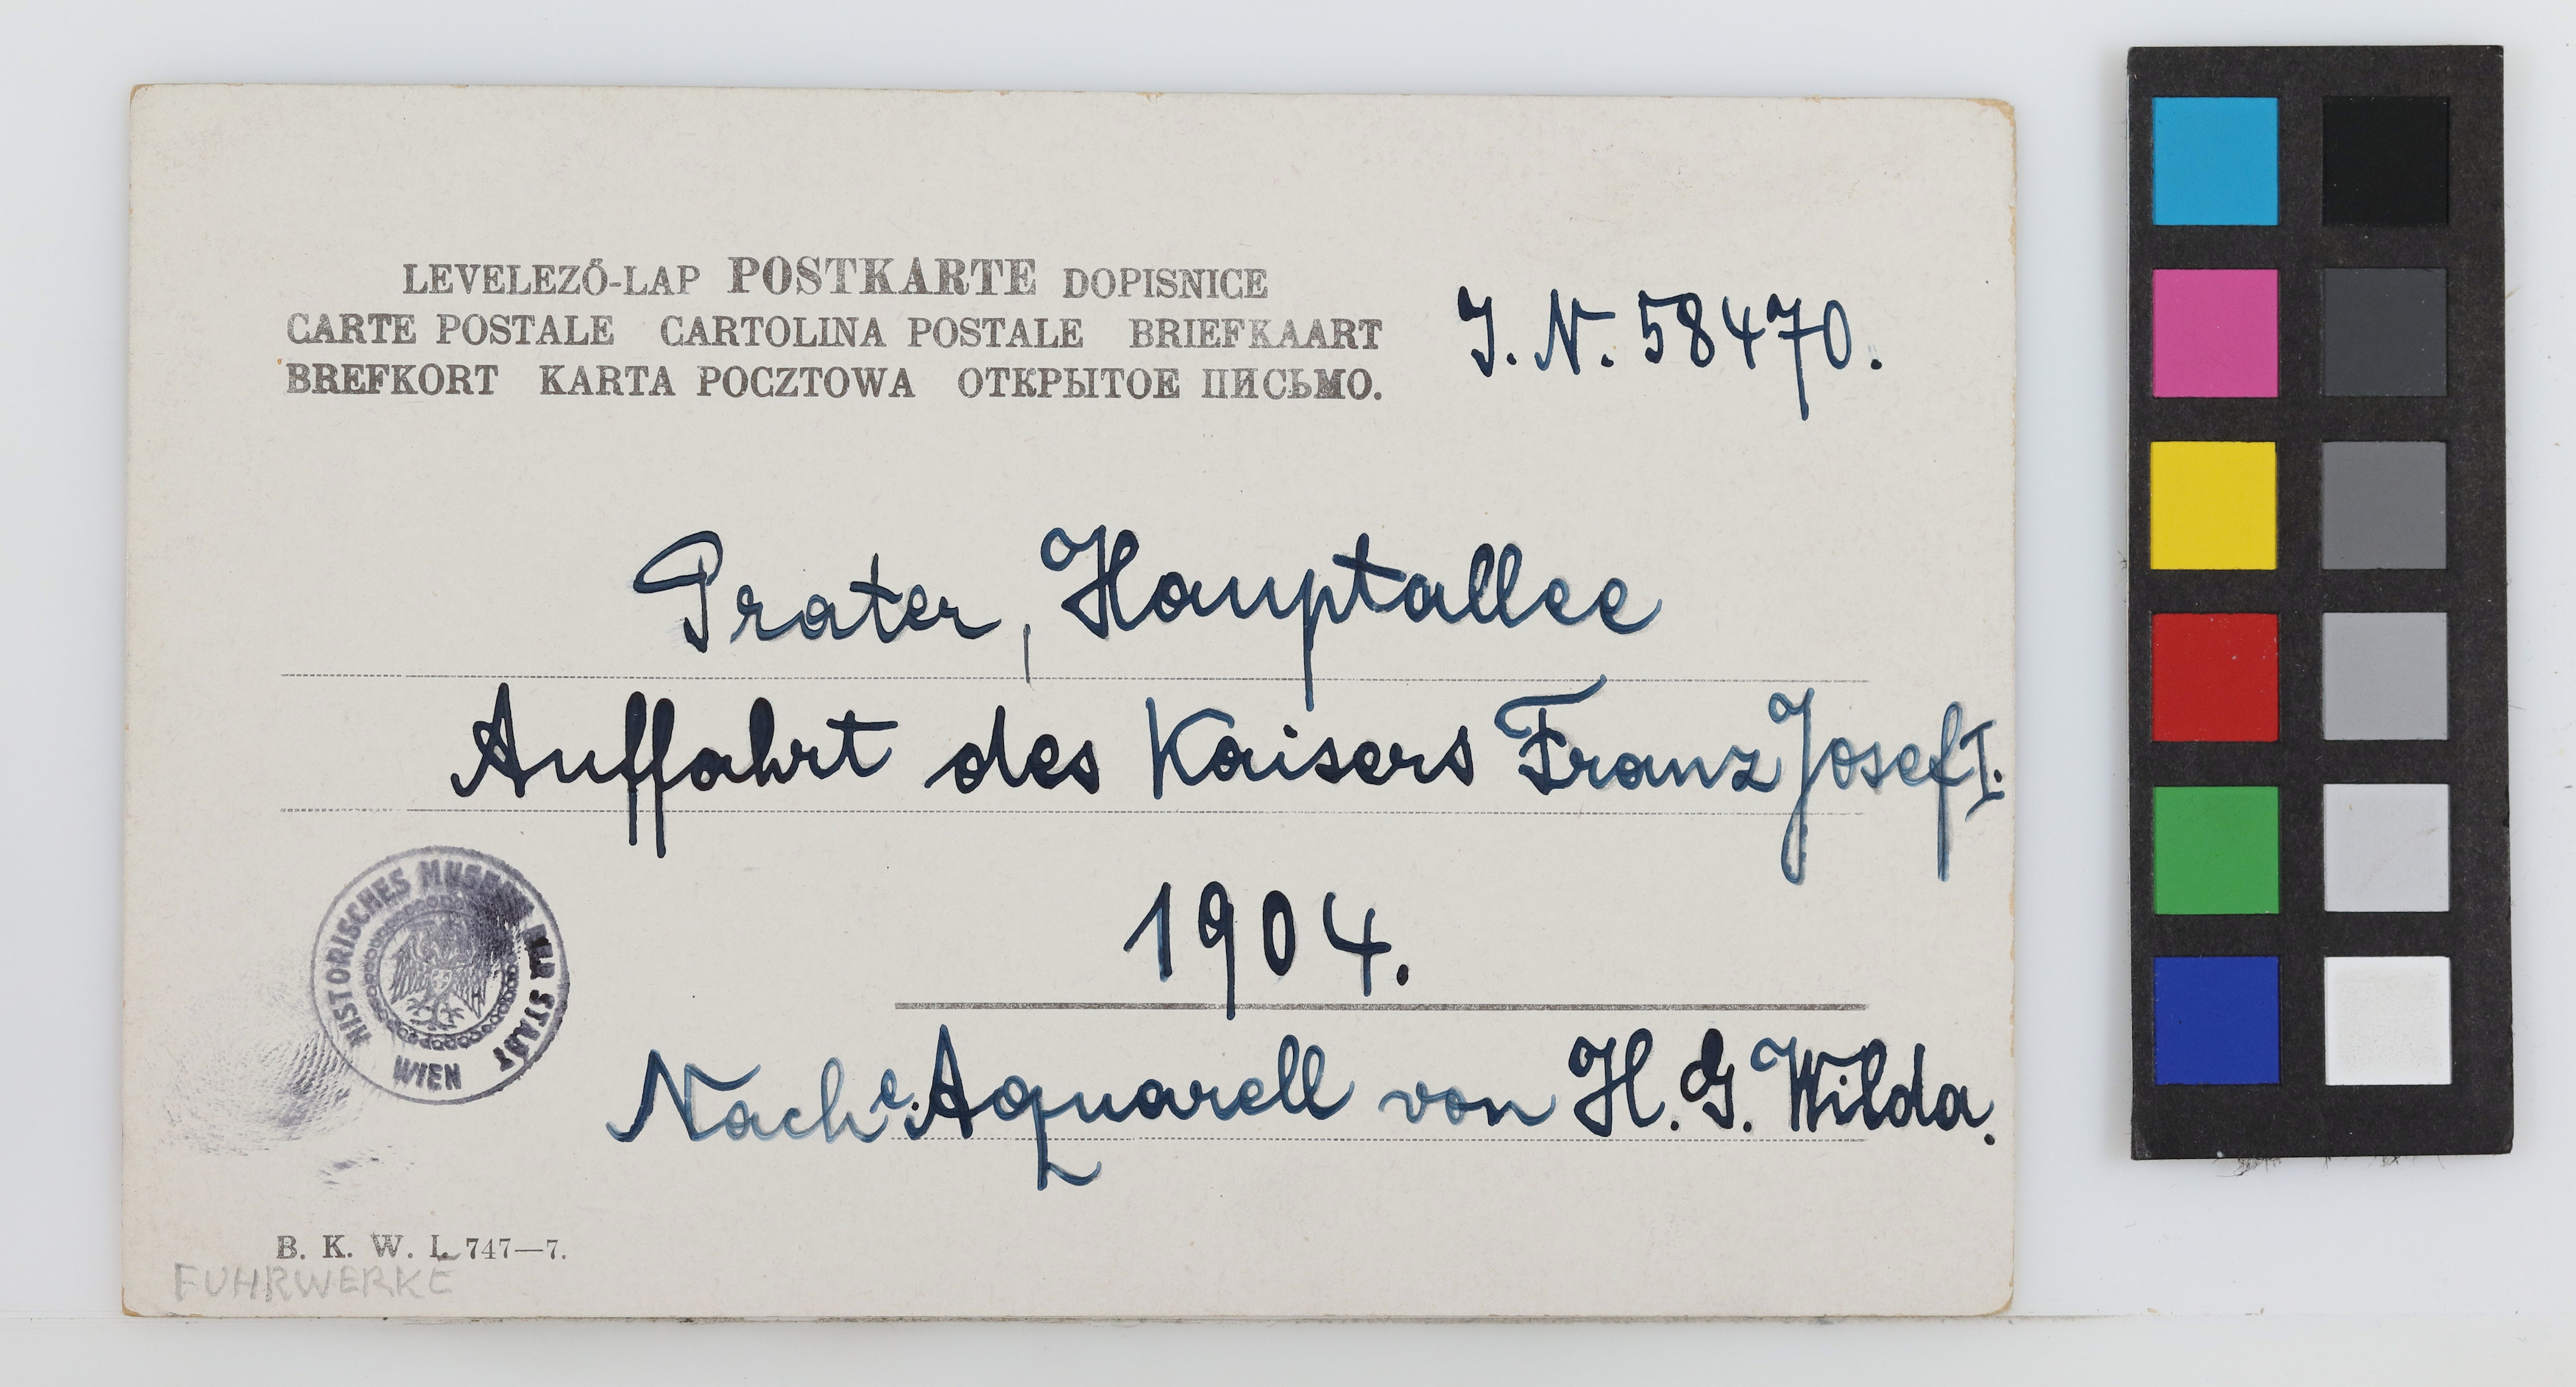 LEVELEZŐ-LAP POSTKARTE DOPISNICE
CARTE POSTALE CARTOLINA POSTALE BRIEFKAART
BREFKORT KARTA POCZTOWA ОТКРЫТОЕ ПИСЬМО.
J. N. 58470.
Prater, Hauptallee
Auffahrt des Kaisers Franz Josef I.
1904.
Nach e. Aquarell von H. G. Wilda.
HISTORISCHES MUSEUM DER STADT WIEN
B. K. W. I. 747—7.
FUHRWERKE